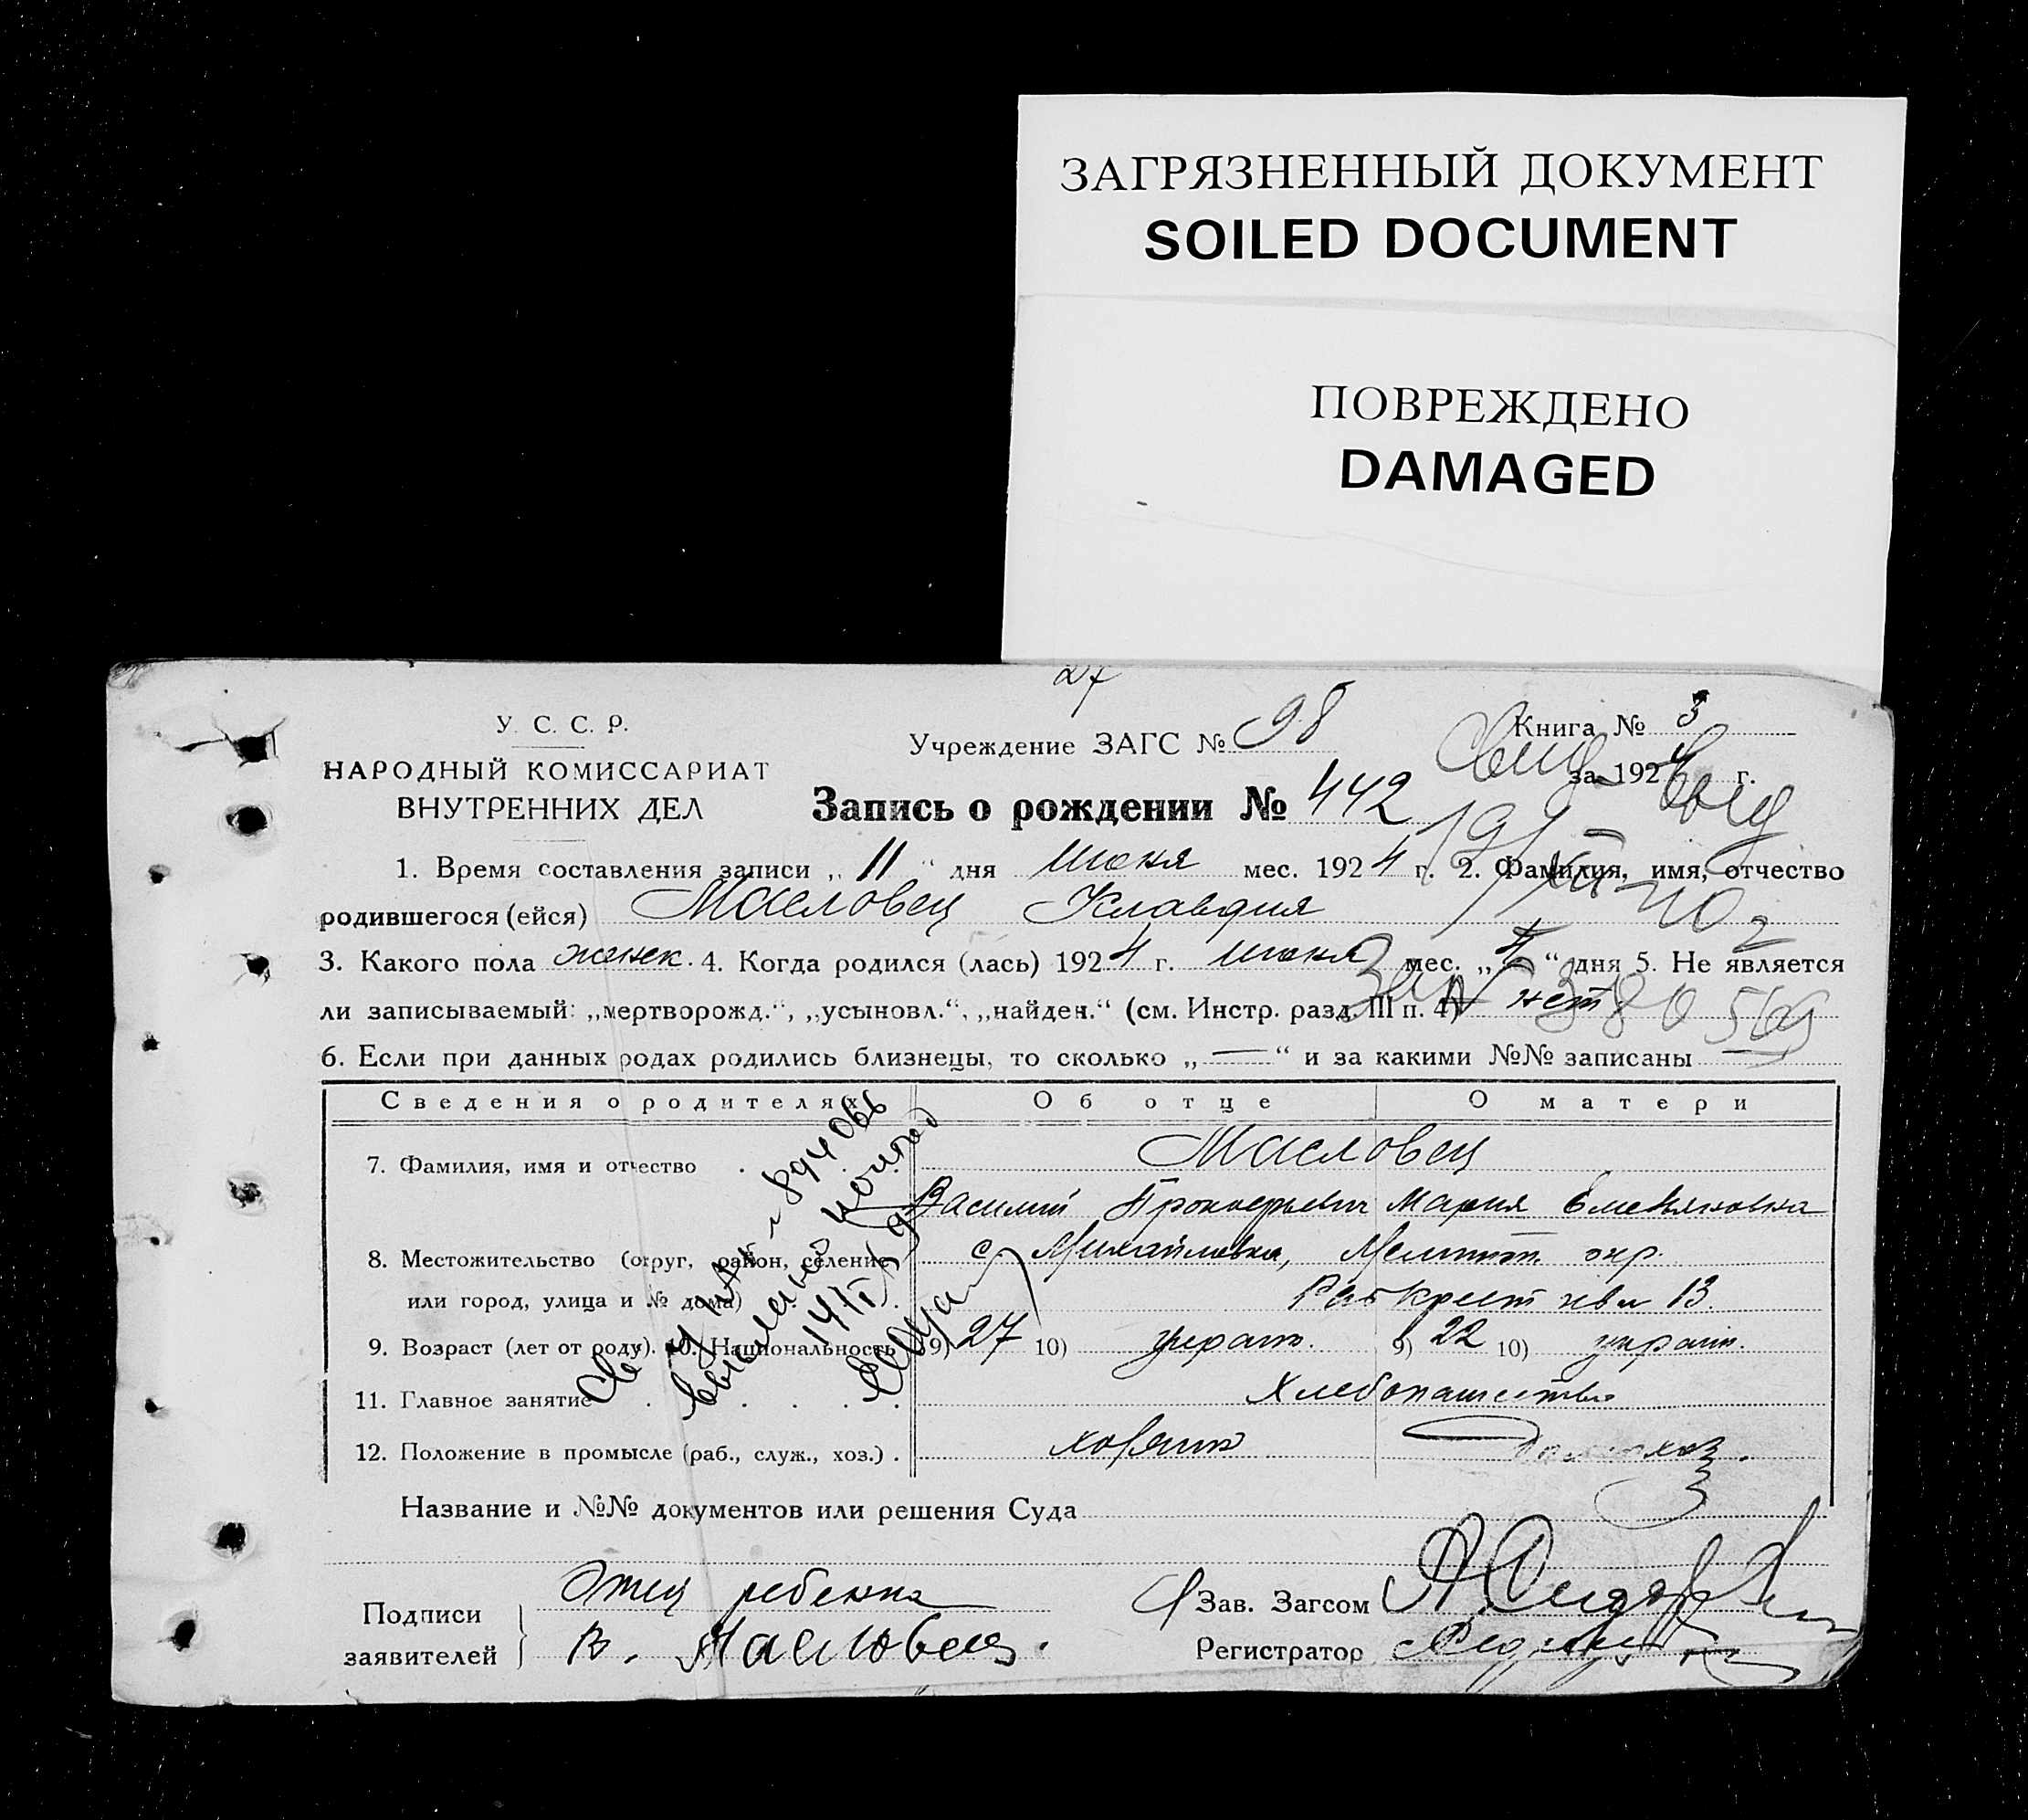 ЗАГРЯЗНЕННЫЙ ДОКУМЕНТ
SOILED DOCUMENT
ПОВРЕЖДЕНО
DAMAGED
27
У. С. С. Р.
НАРОДНЫЙ КОМИССАРИАТ
ВНУТРЕННИХ ДЕЛ
Учреждение ЗАГС № 98
Книга № 3
за 1924 г.
Запись о рождении № 442
1. Время составления записи „ 11 “ дня июня мес. 1924 г. 2. Фамилия, имя, отчество
родившегося (ейся) Масловец Клавдия
3. Какого пола женск. 4. Когда родился (лась) 1924 г. июня мес. „ “ дня 5. Не является
ли записываемый: „мертворожд.“, „усыновл.“, „найден.“ (см. Инстр. разд. III п. 4) нет
6. Если при данных родах родились близнецы, то сколько „—“ и за какими №№ записаны —
Сведения о родителях Об отце О матери
7. Фамилия, имя и отчество Масловец
Василий Прокофьевич Мария Емельяновна
8. Местожительство (округ, район, селение с. Михайловка, Мелитоп. окр.
или город, улица и № дома) 13
9. Возраст (лет от роду). 10. Национальность 9) 27 10) украин. 9) 22 10) украин.
11. Главное занятие Хлебопашество
12. Положение в промысле (раб., служ., хоз.) хозяин
Название и №№ документов или решения Суда
Подписи заявителей Отец ребенка
В. Масловец.
Зав. Загсом
Регистратор